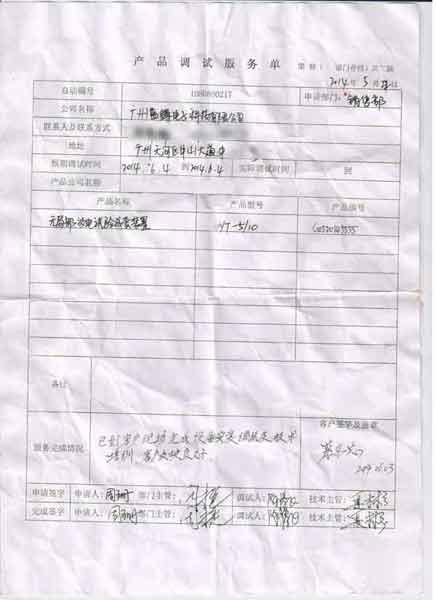 产品调试服务单
2014年5月
自动编号 申请部门: 销售部
公司名称 广州 电子科技有限公司
联系人及联系方式
地址 广州天河区中山大道中
预期调试时间 2014.6.4 到2014.6.4 实际调试时间 到
产品公司名称
产品名称 产品型号 产品编号
无局部放电试验成套装置 YT-5/10
备注
客户签字及盖章
服务完成情况 已到客户现场完成设备安装调试及技术
培训,客户反映良好
申请签字 申请人: 部门主管: 调试人: 技术主管:
完成签字 申请人: 部门主管: 调试人: 技术主管: